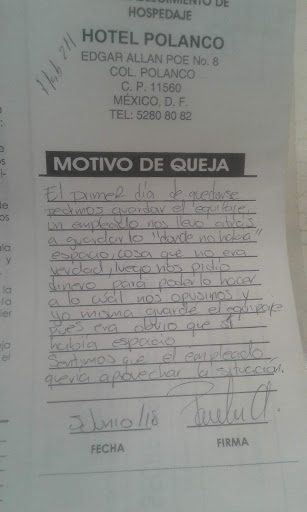 HOSPEDAJE
HOTEL POLANCO
EDGAR ALLAN POE No. 8
COL. POLANCO
C. P. 11560
MÉXICO, D. F.
TEL: 5280 80 82
MOTIVO DE QUEJA
El primer día de quedarse
pedimos guardar el equipaje.
Un empleado nos llevo atrás
a guardarlo "donde no había"
espacio, cosa que no era
verdad, luego nos pidio
dinero para poderlo hacer
a lo cual nos opusimos y
yo misma guarde el equipaje
pues era obvio que sí
había espacio
Sentimos que el empleado
quería aprovechar la situación.
FECHA
FIRMA